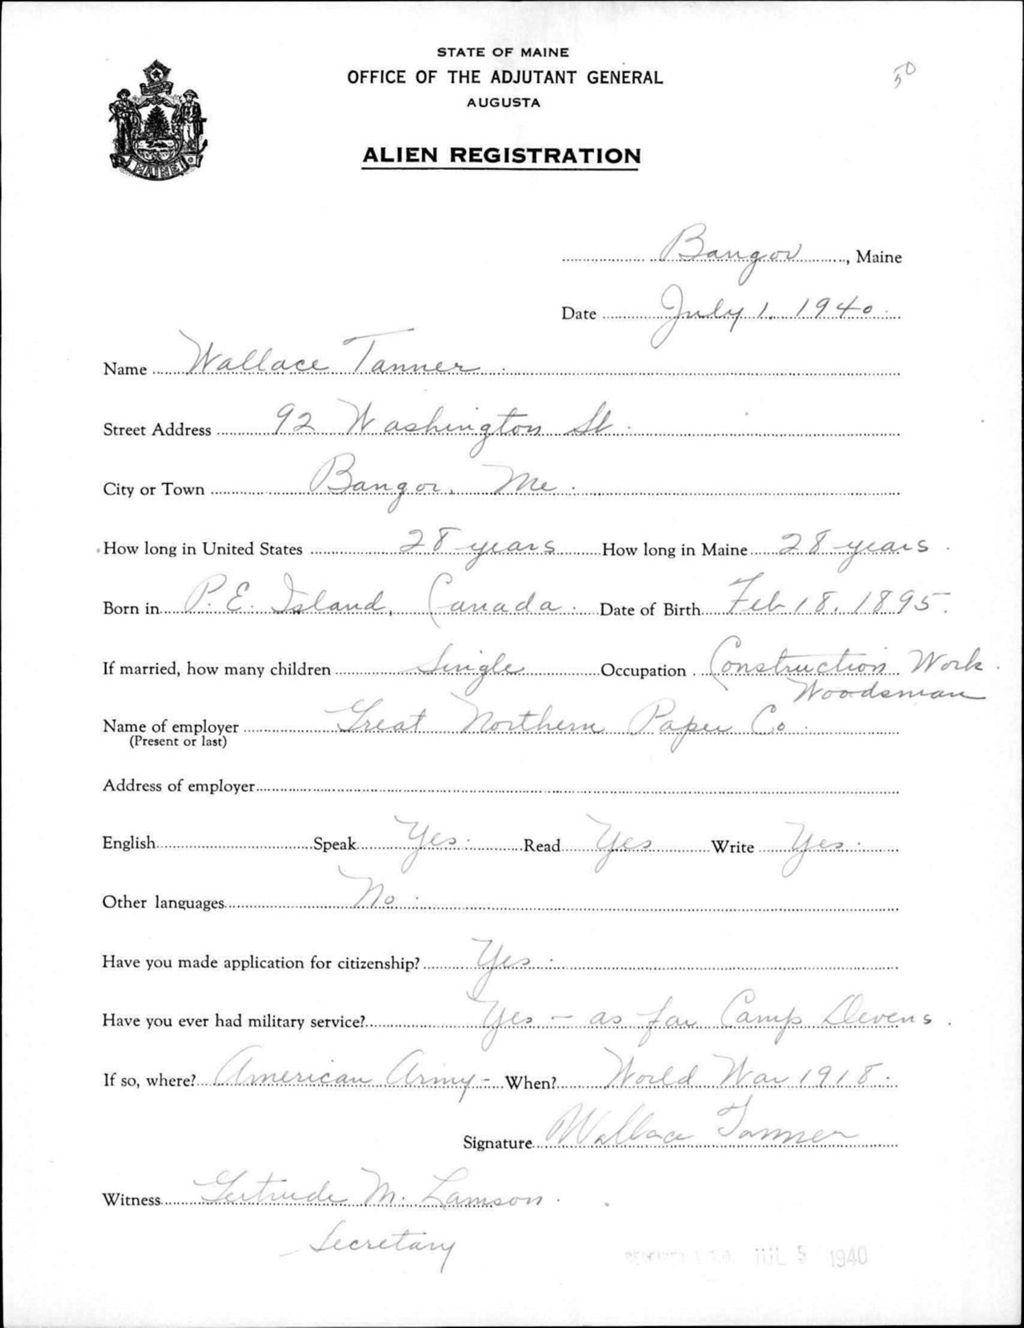 STATE OF MAINE
OFFICE OF THE ADJUTANT GENERAL
AUGUSTA
50
ALIEN REGISTRATION
MAINE
Bangor, Maine
Date July 1, 1940.
Name Wallace Tanner
Street Address 92 Washington St.
City or Town Bangor, Me.
How long in United States 28 years How long in Maine 28 years.
Born in P. E. Island, Canada. Date of Birth Feb 18, 1895.
If married, how many children Single Occupation Construction Work.
Woodsman
Name of employer Great Northern Paper Co.
(Present or last)
Address of employer
English Speak Yes. Read Yes Write Yes.
Other languages No.
Have you made application for citizenship? Yes.
Have you ever had military service? Yes - as far Camp Devens.
If so, where? American Army - When? World War 1918.
Signature Wallace Tanner
Witness Gertrude M. Lamson.
Secretary
RECEIVED A.G.O. JUL 5 1940